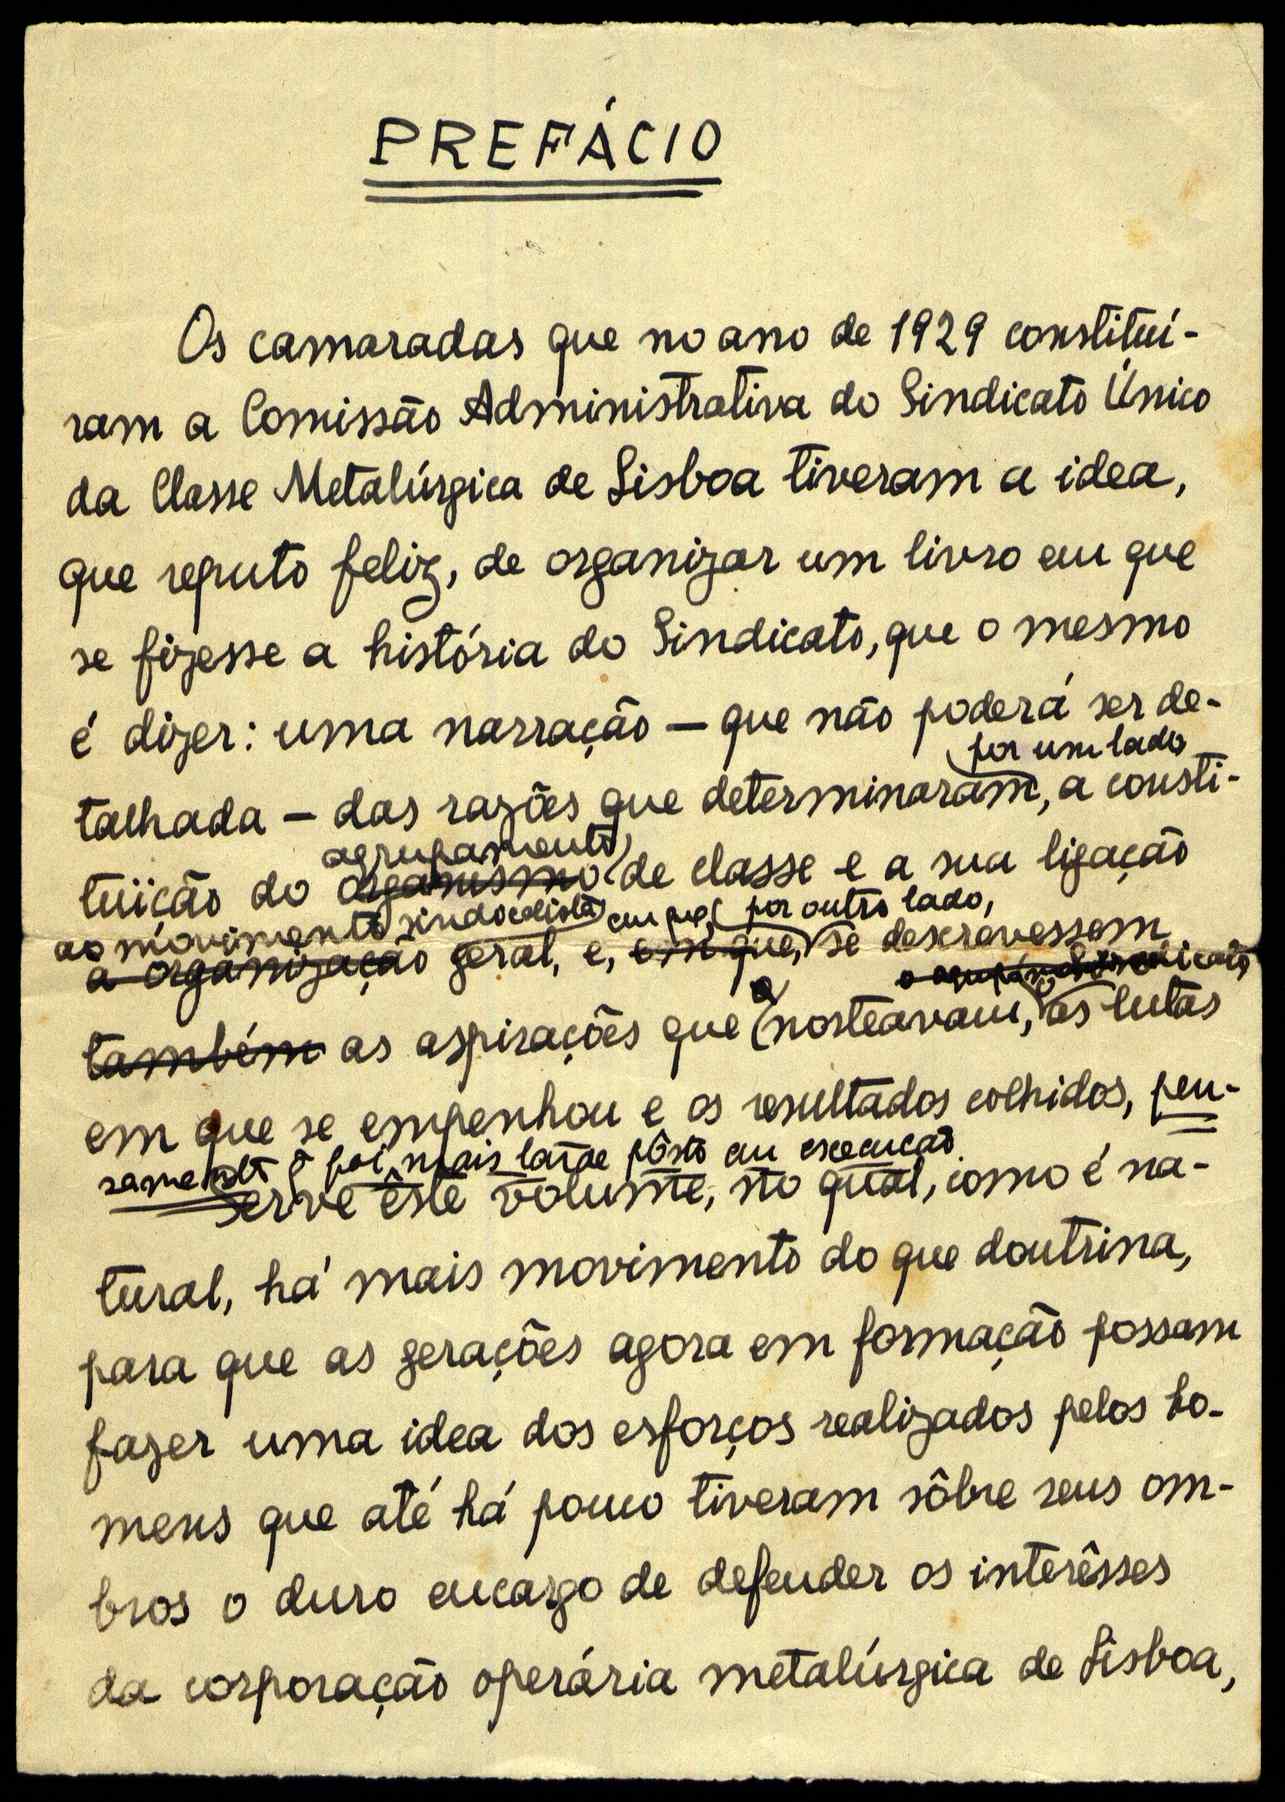 PREFÁCIO
Os camaradas que no ano de 1929 constituí-
ram a Comissão Administrativa do Sindicato Único
da Classe Metalúrgica de Lisboa tiveram a idea,
que reputo feliz, de organizar um livro em que
se fizesse a história do Sindicato, que o mesmo
é dizer: uma narração — que não poderá ser de-
por um lado
talhada — das razões que determinaram, a consti-
agrupamento
tuïção do organismo de classe e a sua ligação
ao movimento sindicalista em que, por outro lado,
a organização geral, e, em que, se descrevessem
o
também as aspirações que norteavam, as lutas
em que se empenhou e os resultados colhidos, pen-
samento q foi mais tarde pôsto em execução.
Serve êste volume, no qual, como é na-
tural, há mais movimento do que doutrina,
para que as gerações agora em formação possam
fazer uma idea dos esforços realizados pelos ho-
mens que até há pouco tiveram sôbre seus om-
bros o duro encargo de defender os interêsses
da corporação operária metalúrgica de Lisboa,